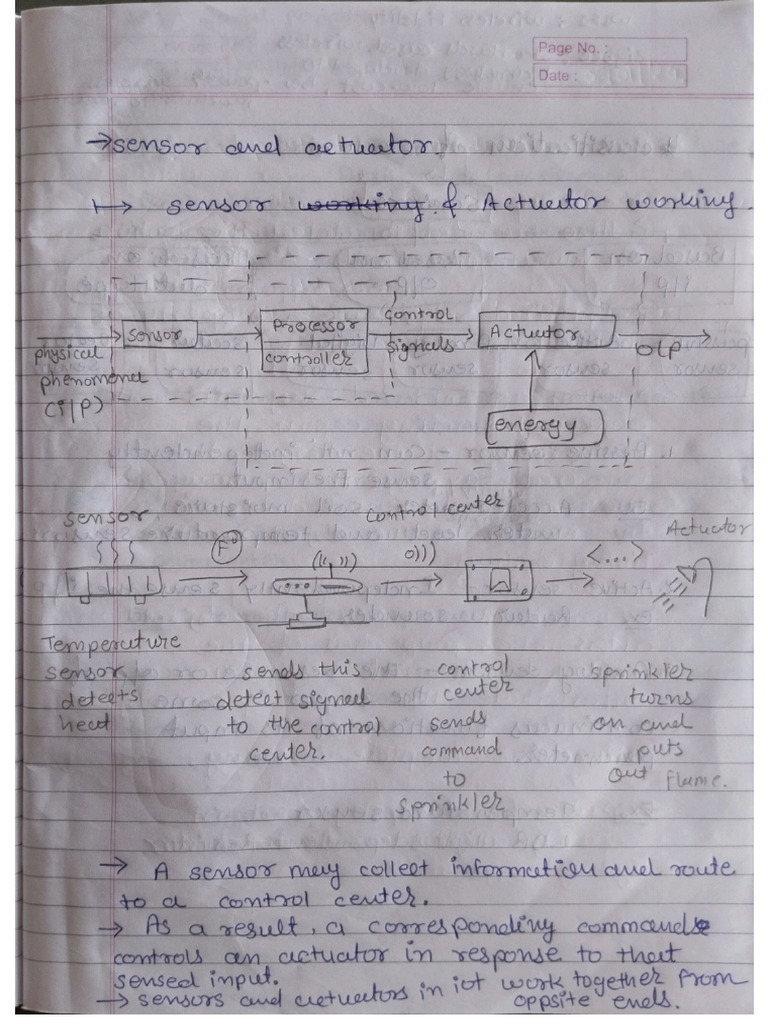 Page No. :
Date :
→ sensor and actuator.
↦ sensor working & Actuator working.
physical phenomonea (i/p)
sensor
Processor
controller
control signals
Actuator
O/P
energy
sensor
F°
((()))
control center
o)))
<...>
Actuator
Temperature sensor detects heat
sends this detect signal to the control center.
control center sends command to sprinkler
sprinkler turns on and puts out flame.
→ A sensor may collect information and route
to a control center.
→ As a result, a corresponding command
controls an actuator in response to that
sensed input.
→ sensors and actuators in iot work together from
oppsite ends.